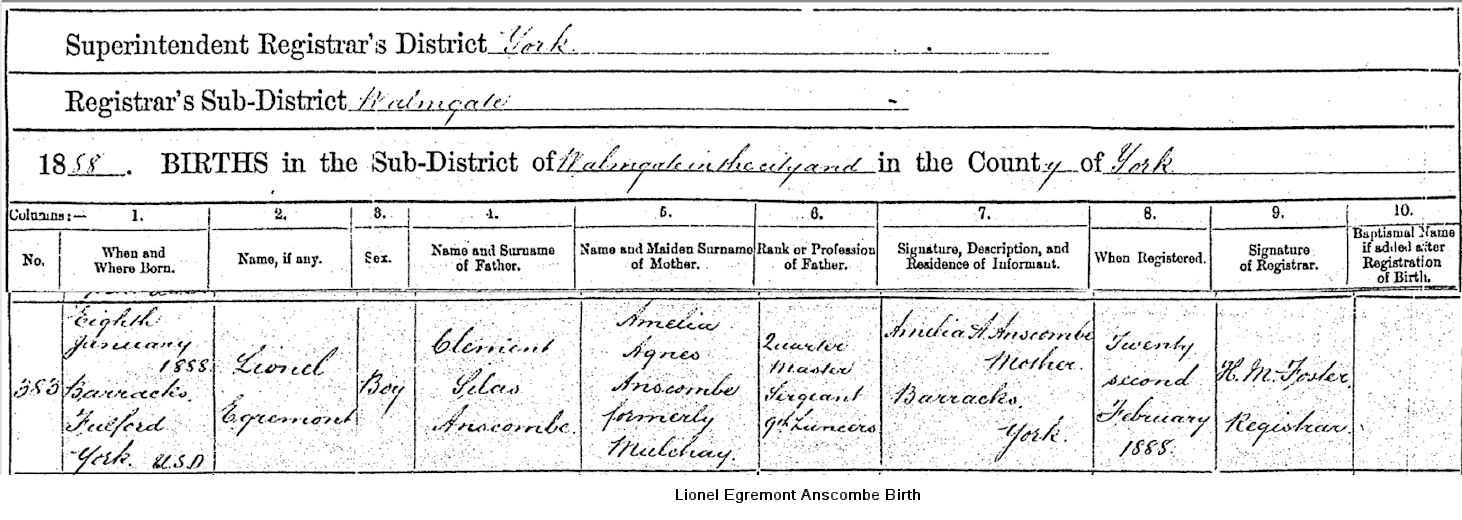 Superintendent Registrar's District York
Registrar's Sub-District Walmgate
1888. BIRTHS in the Sub-District of Walmgate in the city and in the County of York
Columns:— 1. 2. 3. 4. 5. 6. 7. 8. 9. 10.
No.
When and
Where Born.
Name, if any.
Sex.
Name and Surname
of Father.
Name and Maiden Surname
of Mother.
Rank or Profession
of Father.
Signature, Description, and
Residence of Informant.
When Registered.
Signature
of Registrar.
Baptismal Name
if added after
Registration
of Birth.
383
Eighth
January
1888
Barracks
Fulford
York. U.S.D
Lionel
Egremont
Boy
Clement
Silas
Anscombe.
Amelia
Agnes
Anscombe
formerly
Mulchay.
Quarter
Master
Sergeant
9th Lancers
Amelia A. Anscombe
Mother.
Barracks.
York.
Twenty
second
February
1888.
H. M. Foster
Registrar.
Lionel Egremont Anscombe Birth